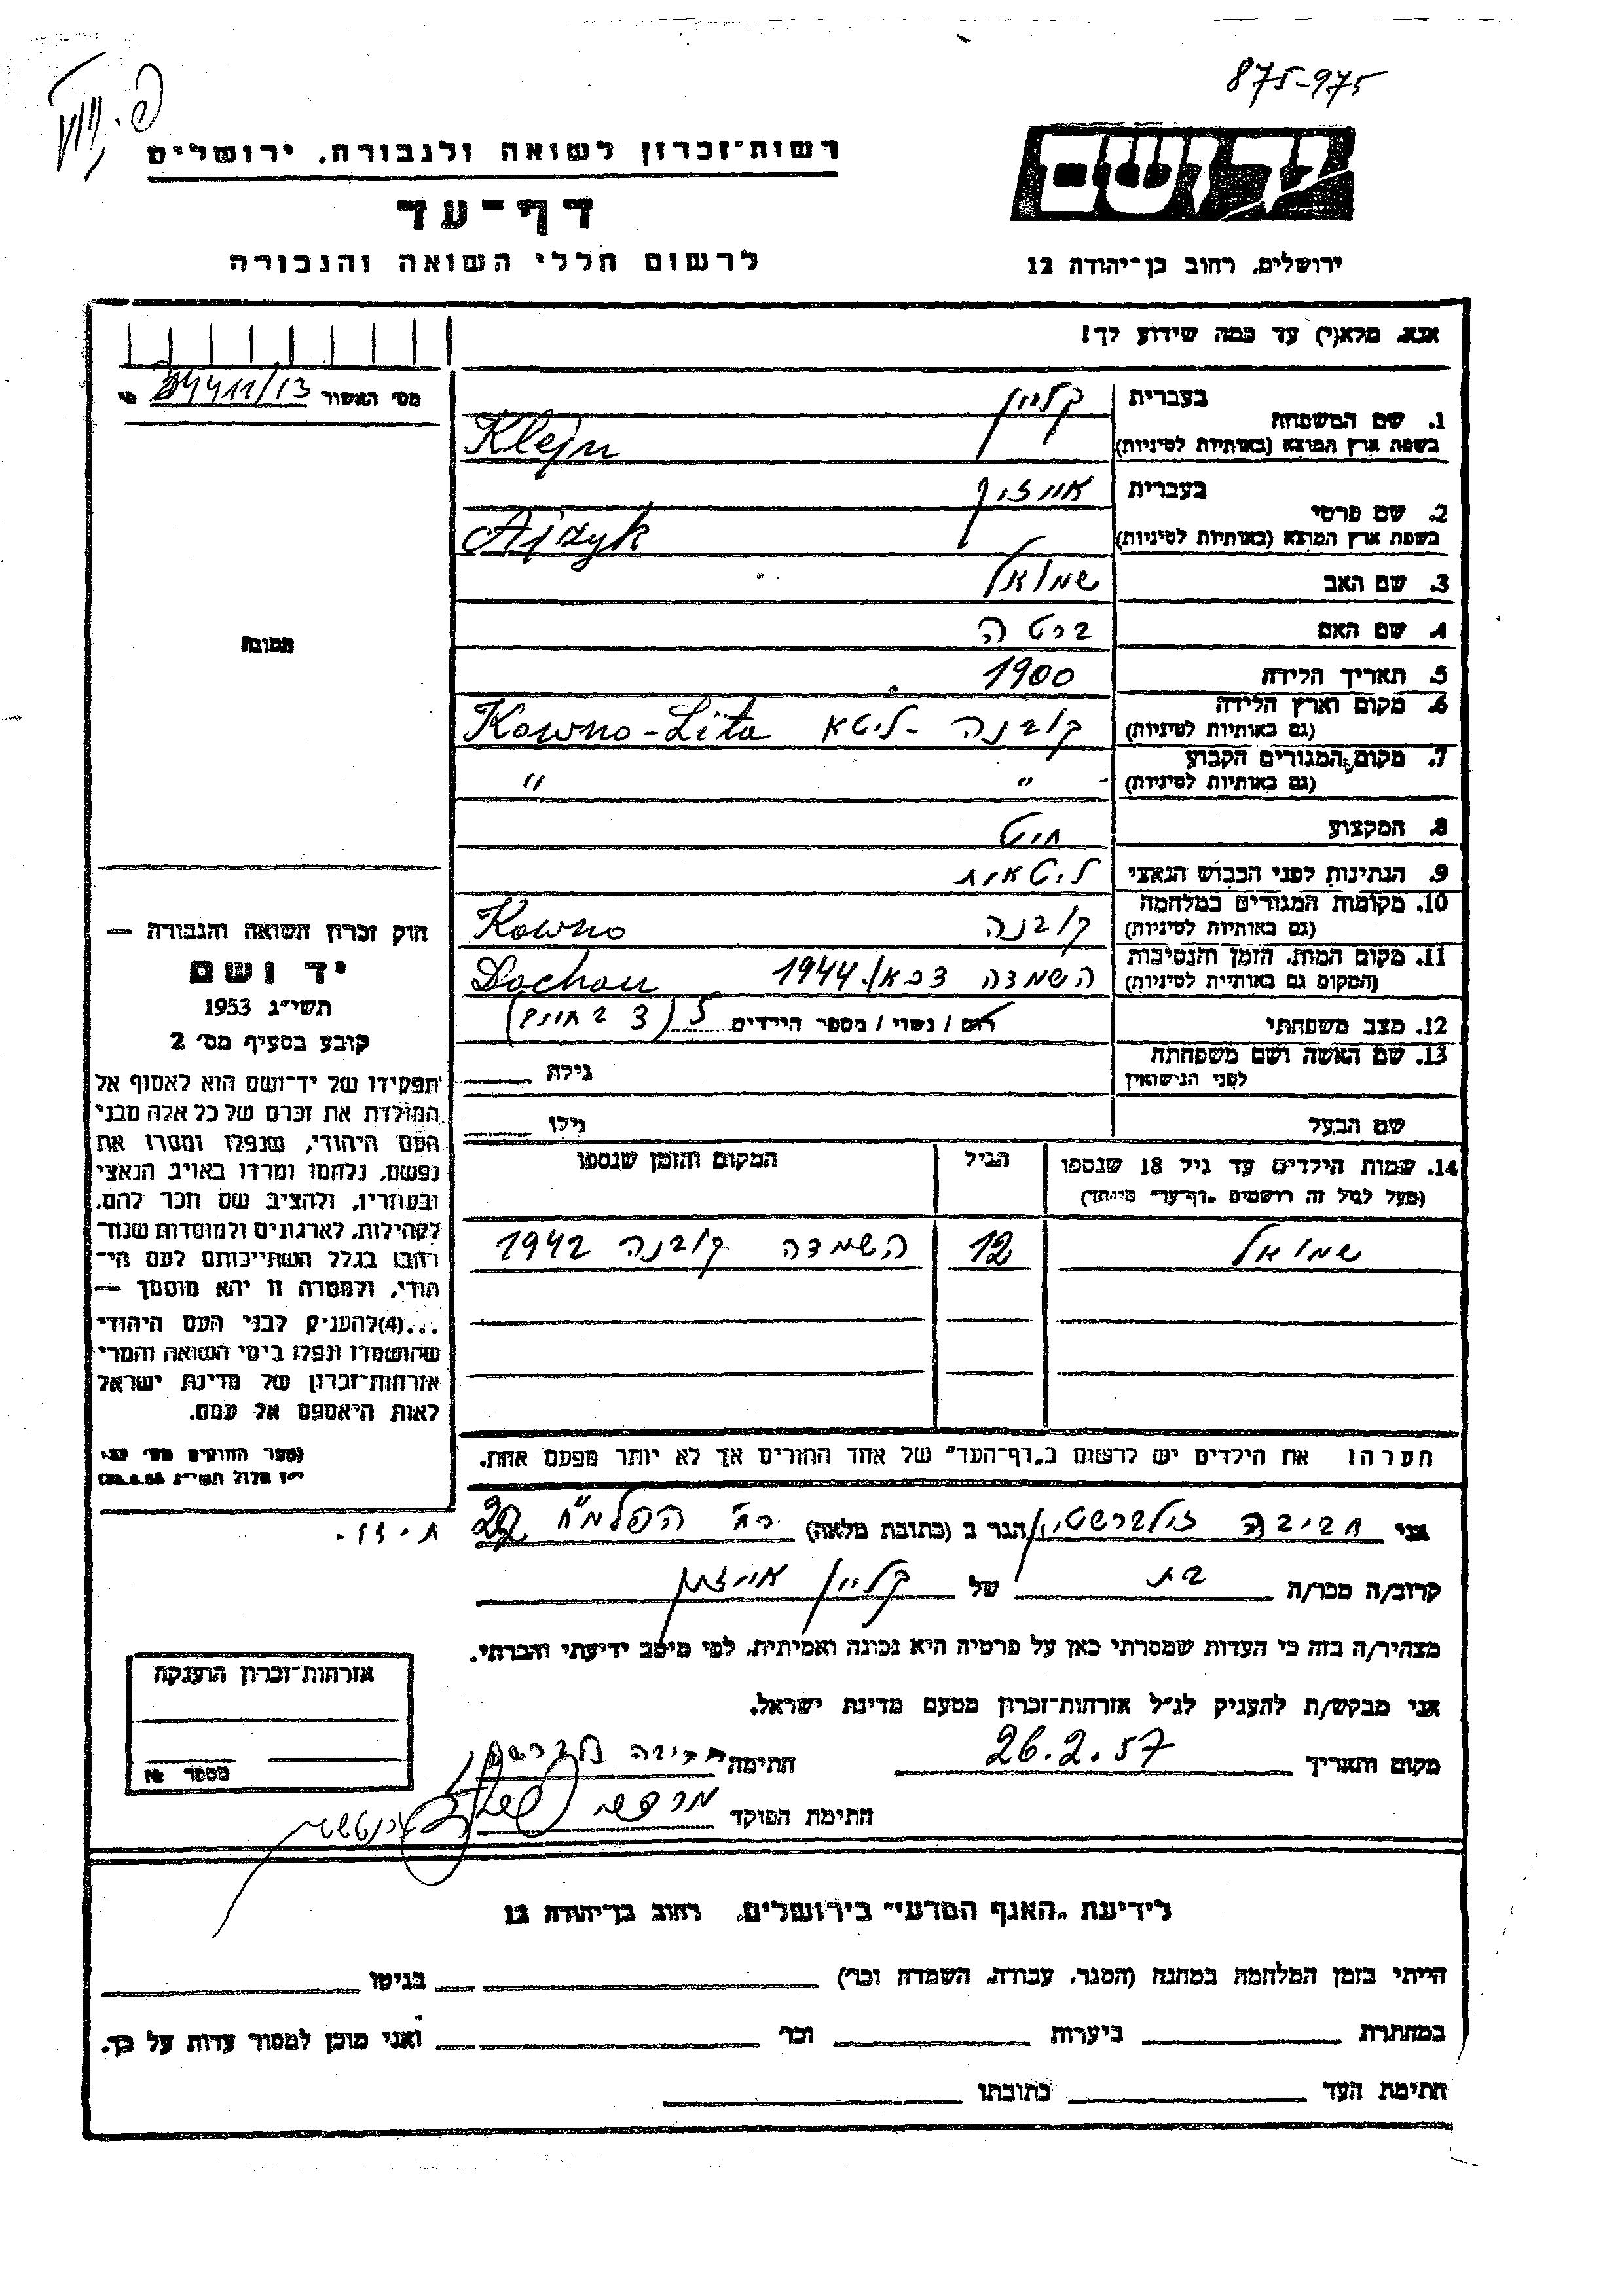 875-975
רשות־זכרון לשואה ולגבורה, ירושלים
דף־עד
לרשום חללי השואה והגבורה
ידושם
ירושלים, רחוב בן־יהודה 12
אנא, מלא(י) עד כמה שידוע לך!
מס׳ האשור
1. שם המשפחה בעברית קליין
בשפת ארץ המוצא (באותיות לטיניות) Klejn
2. שם פרטי בעברית אייזיק
בשפת ארץ המוצא (באותיות לטיניות) Ajzyk
3. שם האב שמואל
4. שם האם ברטה
5. תאריך הלידה 1900
6. מקום וארץ הלידה (גם באותיות לטיניות) קובנה - ליטא Kowno-Lita
7. מקום המגורים הקבוע (גם באותיות לטיניות) " "
8. המקצוע חייט
9. הנתינות לפני הכבוש הנאצי ליטאית
10. מקומות המגורים במלחמה (גם באותיות לטיניות) קובנה Kowno
11. מקום המות, הזמן והנסיבות (המקום גם באותיות לטיניות) השמדה דכאו 1944 Dachau
12. מצב משפחתי רווק / נשוי / מספר הילדים
13. שם האשה ושם משפחתה לפני הנישואין גילה
שם הבעל גילו
14. שמות הילדים עד גיל 18 שנספו הגיל המקום והזמן שנספו
(מעל לגיל זה רושמים „דף־עד״ מיוחד)
שמואל 12 השמדה קובנה 1942
הערה: את הילדים יש לרשום ב„דף־העד״ של אחד ההורים אך לא יותר מפעם אחת.
תמונה
חוק זכרון השואה והגבורה —
יד ושם
תשי״ג 1953
קובע בסעיף מס׳ 2
תפקידו של יד־ושם הוא לאסוף אל
המולדת את זכרם של כל אלה מבני
העם היהודי, שנפלו ומסרו את
נפשם, נלחמו ומרדו באויב הנאצי
ובעוזריו, ולהציב שם וזכר להם,
לקהילות, לארגונים ולמוסדות שנח־
רבו בגלל השתייכותם לעם הי־
הודי, ולמטרה זו יהא מוסמך —
...(4)להעניק לבני העם היהודי
שהושמדו ונפלו בימי השואה והמרי
אזרחות־זכרון של מדינת ישראל
לאות היאספם אל עמם.
אני חביבה זילברשטיין הגר ב (כתובת מלאה) רח׳ הפלמ״ח 22
קרוב/ה מכר/ה בת של קליין אייזיק
מצהיר/ה בזה כי העדות שמסרתי כאן על פרטיה היא נכונה ואמיתית, לפי מיטב ידיעתי והכרתי.
אני מבקש/ת להעניק לנ״ל אזרחות־זכרון מטעם מדינת ישראל.
מקום ותאריך 26.2.57 חתימה
חתימת הפוקד
אזרחות־זכרון הוענקה
מספר №
לידיעת „האגף המדעי״ בירושלים, רחוב בן־יהודה 12
הייתי בזמן המלחמה במחנה (הסגר, עבודה, השמדה וכו׳) בגיטו
במחתרת ביערות וכו׳ ואני מוכן למסור עדות על כך.
חתימת העד כתובתו